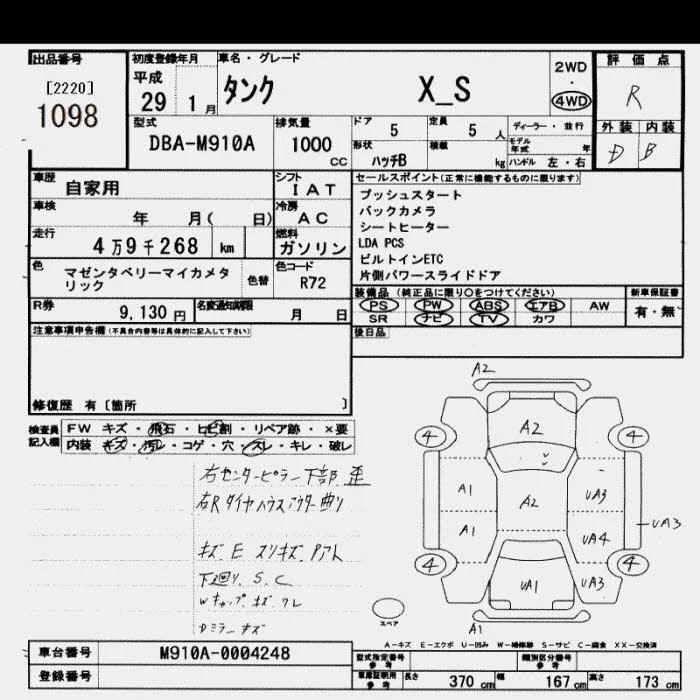 出品番号 初度登録年月 車名・グレード 評価点
[2220] 平成 2WD
1098 29 1月 タンク X_S ・ 4WD R
型式 排気量 ドア 5 定員 5 人 ディーラー・並行 外装 内装
DBA-M910A 1000 cc 形状 ハッチB 積載 kg モデル年式 年 ハンドル 左・右 D B
車歴 自家用 シフト IAT セールスポイント(正常に機能するものに限ります)
車検 年 月( 日) 冷房 AC プッシュスタート
バックカメラ
走行 4万9千268 km 燃料 ガソリン シートヒーター
LDA PCS
色 マゼンタベリーマイカメタリック 色替 色コード R72 ビルトインETC
片側パワースライドドア
R券 9,130円 名変通知期限 月 日 装備品(純正品に限り○をつけてください) 新車保証書
PS PW ABS エアB AW 有・無
SR ナビ TV カワ
注意事項申告欄(不具合内容等は具体的に記入して下さい) 後日品
修復歴 有〔箇所 〕
検査員記入欄 FW キズ・飛石・ヒビ割・リペア跡・×要
内装 キズ・汚レ・コゲ・穴・スレ・キレ・破レ
右センターピラー下部 歪
右Rタイヤハウスアウター曲り
キズ E スリキズ. Pアト
下廻り. S. C
Wキャップ キズ ワレ
Dミラー キズ
A2
4 A2 4
A1 A2 UA3
A1 UA4 UA3
4 UA1 UA3 4
A1
スペア
A-キズ E-エクボ U-凹み W-補修跡 S-サビ C-腐食 XX-交換済
車台番号 M910A-0004248 型式指定番号 参考 類別区分番号 参考
登録番号 車庫証明用 参考 長さ 370 cm 幅 167 cm 高さ 173 cm